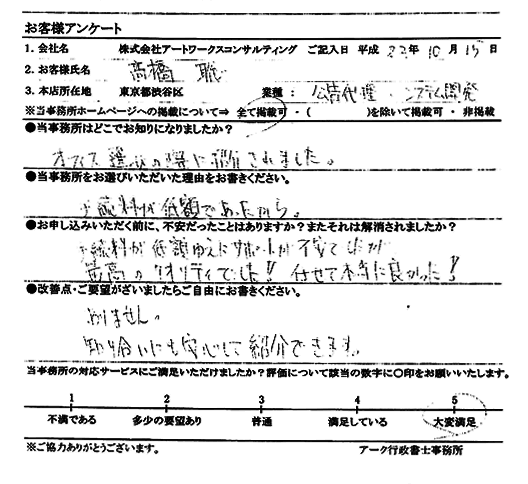 お客様アンケート
1. 会社名 株式会社アートワークスコンサルティング ご記入日 平成 22 年 10 月 15 日
2. お客様氏名 高橋 聡
3. 本店所在地 東京都渋谷区 業種： 広告代理・システム開発
※当事務所ホームページへの掲載について⇒ 全て掲載可 ・ ( )を除いて掲載可 ・ 非掲載
●当事務所はどこでお知りになりましたか？
オフィス選びの際に紹介されました。
●当事務所をお選びいただいた理由をお書きください。
手続料が低額であったから。
●お申し込みいただく前に、不安だったことはありますか？またそれは解消されましたか？
手続料が低額ゆえにサポートが不安でしたが
最高のクオリティでした！任せて本当に良かった！
●改善点・ご要望がざいましたらご自由にお書きください。
別ません。
知り合いにも安心して紹介できます。
当事務所の対応サービスにご満足いただけましたか？評価について該当の数字に○印をお願いいたします。
1 2 3 4 5
不満である 多少の要望あり 普通 満足している 大変満足
※ご協力ありがとうございます。 アーク行政書士事務所